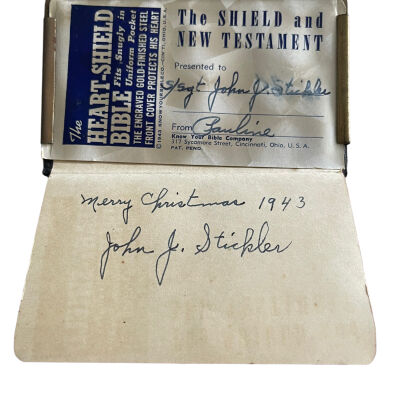 The
HEART-SHIELD
BIBLE Fits Snugly in
Uniform Pocket
THE ENGRAVED GOLD-FINISHED STEEL
FRONT COVER PROTECTS HIS HEART
The SHIELD and
NEW TESTAMENT
Presented to
S/Sgt John J. Stickler
From Pauline
Know Your Bible Company
317 Sycamore Street, Cincinnati, Ohio, U. S. A.
PAT. PEND.
Merry Christmas 1943
John J. Stickler